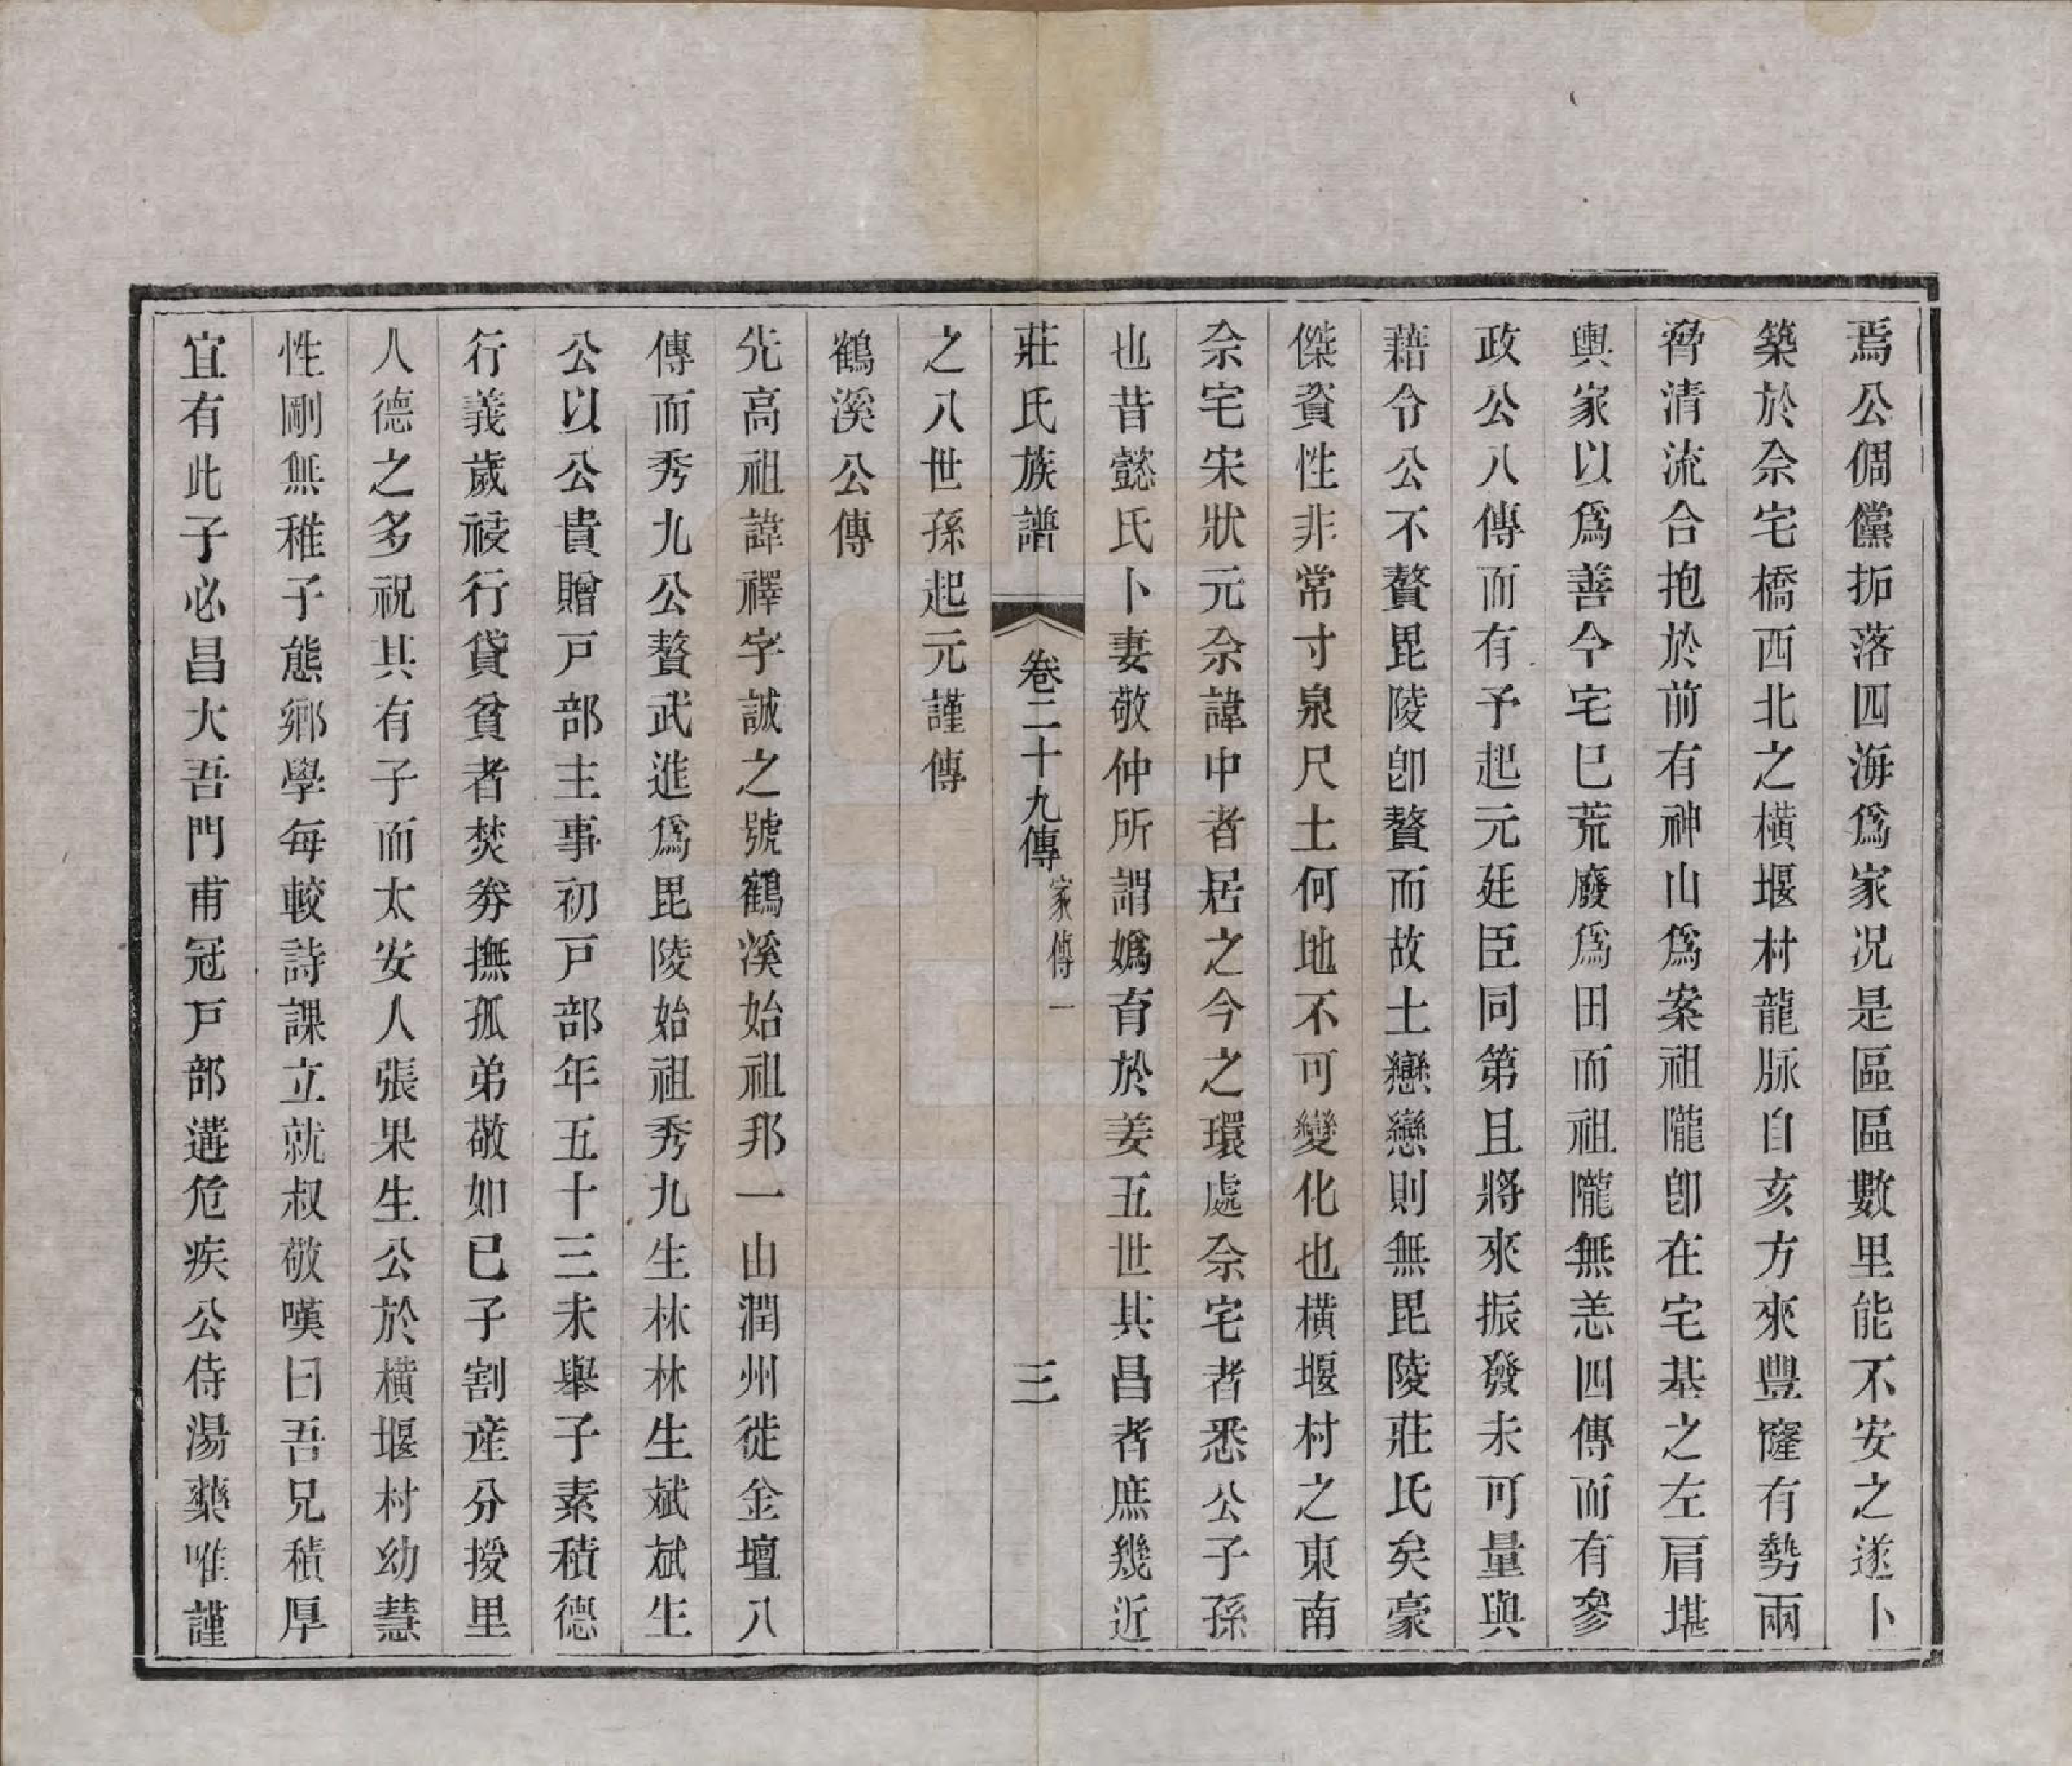 焉公倜儻拓落四海爲家况是區區數里能不安之遂卜
築於佘宅橋西北之橫堰村龍脉自亥方來豐窿有勢兩
脅清流合抱於前有神山爲案祖隴卽在宅基之左肩堪
輿家以爲善今宅已荒廢爲田而祖隴無恙四傳而有參
政公八傳而有予起元廷臣同第且將來振發未可量與
藉令公不贅毘陵卽贅而故土戀戀則無毘陵莊氏矣豪
傑資性非常寸泉尺土何地不可變化也橫堰村之東南
佘宅宋狀元佘諱中者居之今之環處佘宅者悉公子孫
也昔懿氏卜妻敬仲所謂嬀育於姜五世其昌者庶幾近
莊氏族譜 卷二十九傳 家傳一 三
之八世孫起元謹傳
鶴溪公傳
先高祖諱禪字誠之號鶴溪始祖邦一山潤州徙金壇八
傳而秀九公贅武進爲毘陵始祖秀九生林林生斌斌生
公以公貴贈戸部主事初戸部年五十三未舉子素積德
行義歲祲行貸貧者焚券撫孤弟敬如已子割産分授里
人德之多祝其有子而太安人張果生公於橫堰村幼慧
性剛無稚子態鄉學每較詩課立就叔敬嘆曰吾兄積厚
宜有此子必昌大吾門甫冠戸部遘危疾公侍湯藥唯謹